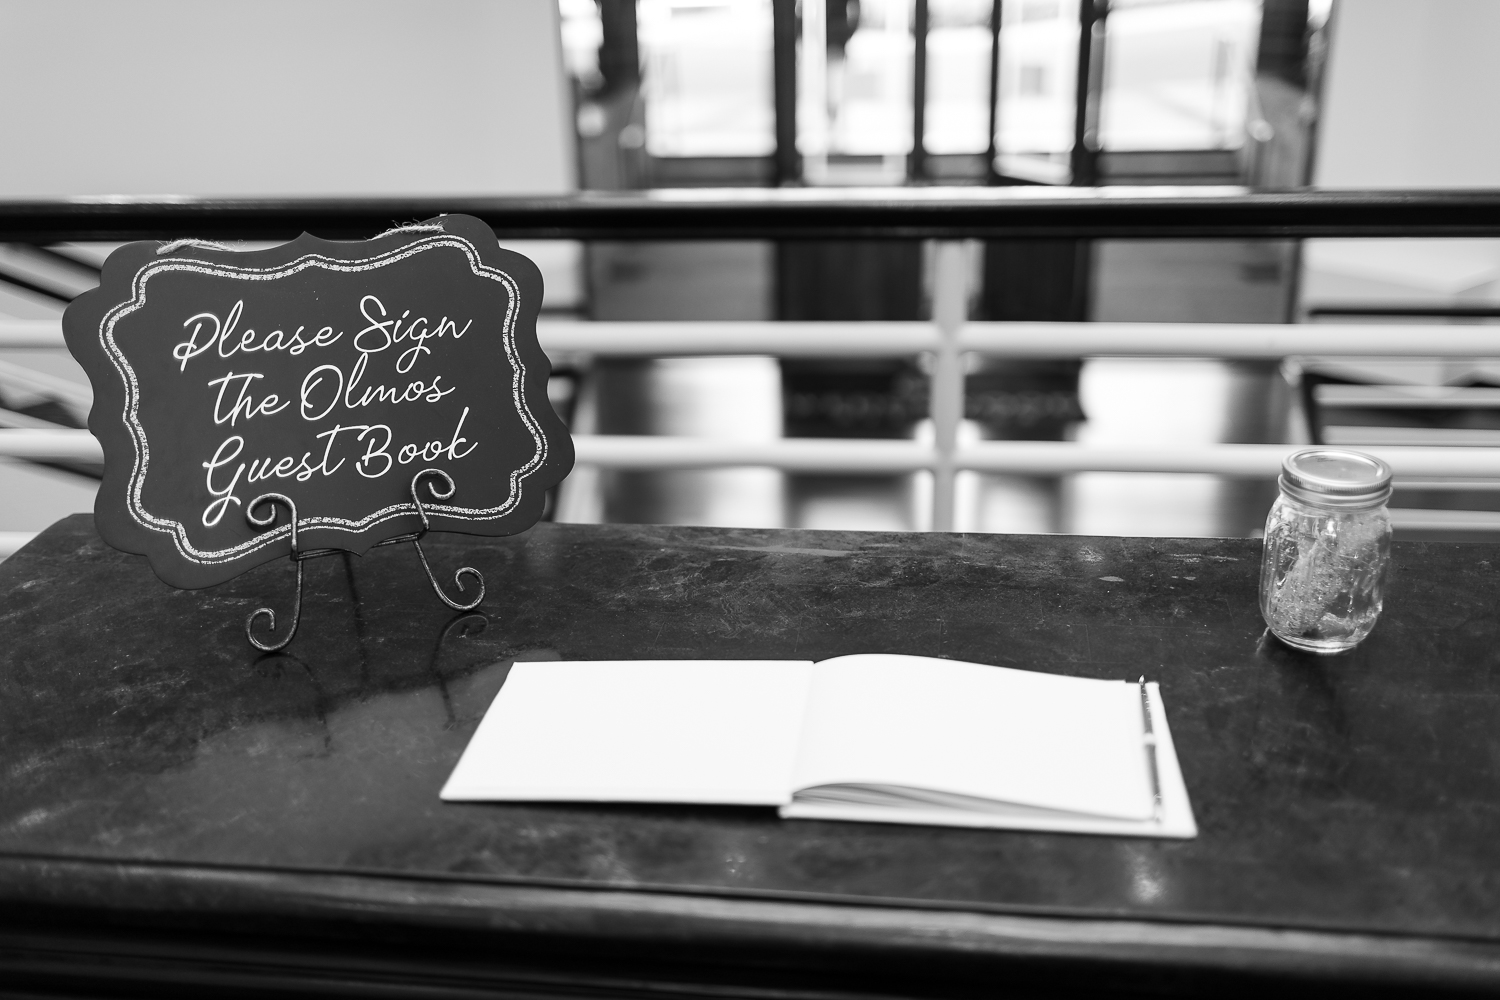 Please Sign
The Olmos
Guest Book